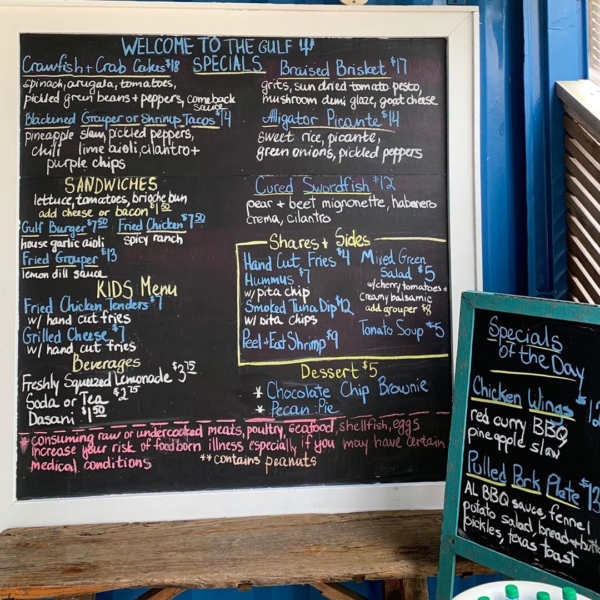 WELCOME TO THE GULF
SPECIALS
Crawfish + Crab Cakes $18
spinach, arugala, tomatoes,
pickled green beans + peppers, comeback
sauce
Blackened Grouper or Shrimp Tacos $14
pineapple slaw, pickled peppers,
chili lime aioli, cilantro +
purple chips
Braised Brisket $17
grits, sun dried tomato pesto,
mushroom demi glaze, goat cheese
Alligator Picante $14
sweet rice, picante,
green onions, pickled peppers
SANDWICHES
lettuce, tomatoes, brioche bun
add cheese or bacon $1.50
Gulf Burger $7.50 Fried Chicken $7.50
house garlic aioli spicy ranch
Fried Grouper $13
lemon dill sauce
KIDS Menu
Fried Chicken Tenders $7
w/ hand cut fries
Grilled Cheese $7
w/ hand cut fries
Beverages
Freshly Squeezed Lemonade $3.75
Soda or Tea $2.75
Dasani $1.50
Cured Swordfish $12
pear + beet mignonette, habanero
crema, cilantro
Shares + Sides
Hand Cut Fries $4
Hummus $7
w/ pita chip
Smoked Tuna Dip $12
w/ pita chips
Peel + Eat Shrimp $9
Mixed Green
Salad $5
w/ cherry tomatoes +
creamy balsamic
add grouper $8
Tomato Soup $5
Dessert $5
* Chocolate Chip Brownie
* Pecan Pie
* consuming raw or undercooked meats, poultry, seafood, shellfish, eggs
increase your risk of foodborn illness especially if you may have certain
medical conditions
** contains peanuts
Specials
of the Day
Chicken Wings
red curry BBQ
pineapple slaw
Pulled Pork Plate $13
AL BBQ sauce, fennel
potato salad, bread + butter
pickles, texas toast